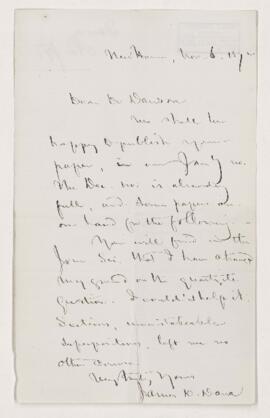 New Haven, Nov. 6. 187
Dear Dr Dawson
We shall be
happy to publish your
paper, in our Jan'y no.
The Dec. no. is already
full, and some papers are
on hand for the following.
You will find in the
Jour. Sci. that I have a
my ground on the quartzite
question. I could'nt help it.
Sections, unmistakeable
superpositions, left me no
other course.
Very truly Yours
James D. Dana